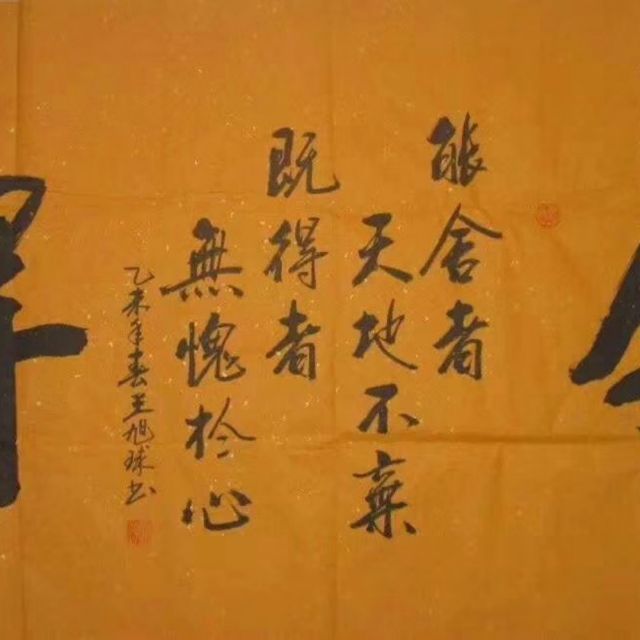 能舍者
天地不棄
既得者
無愧於心
乙未年春王旭球书